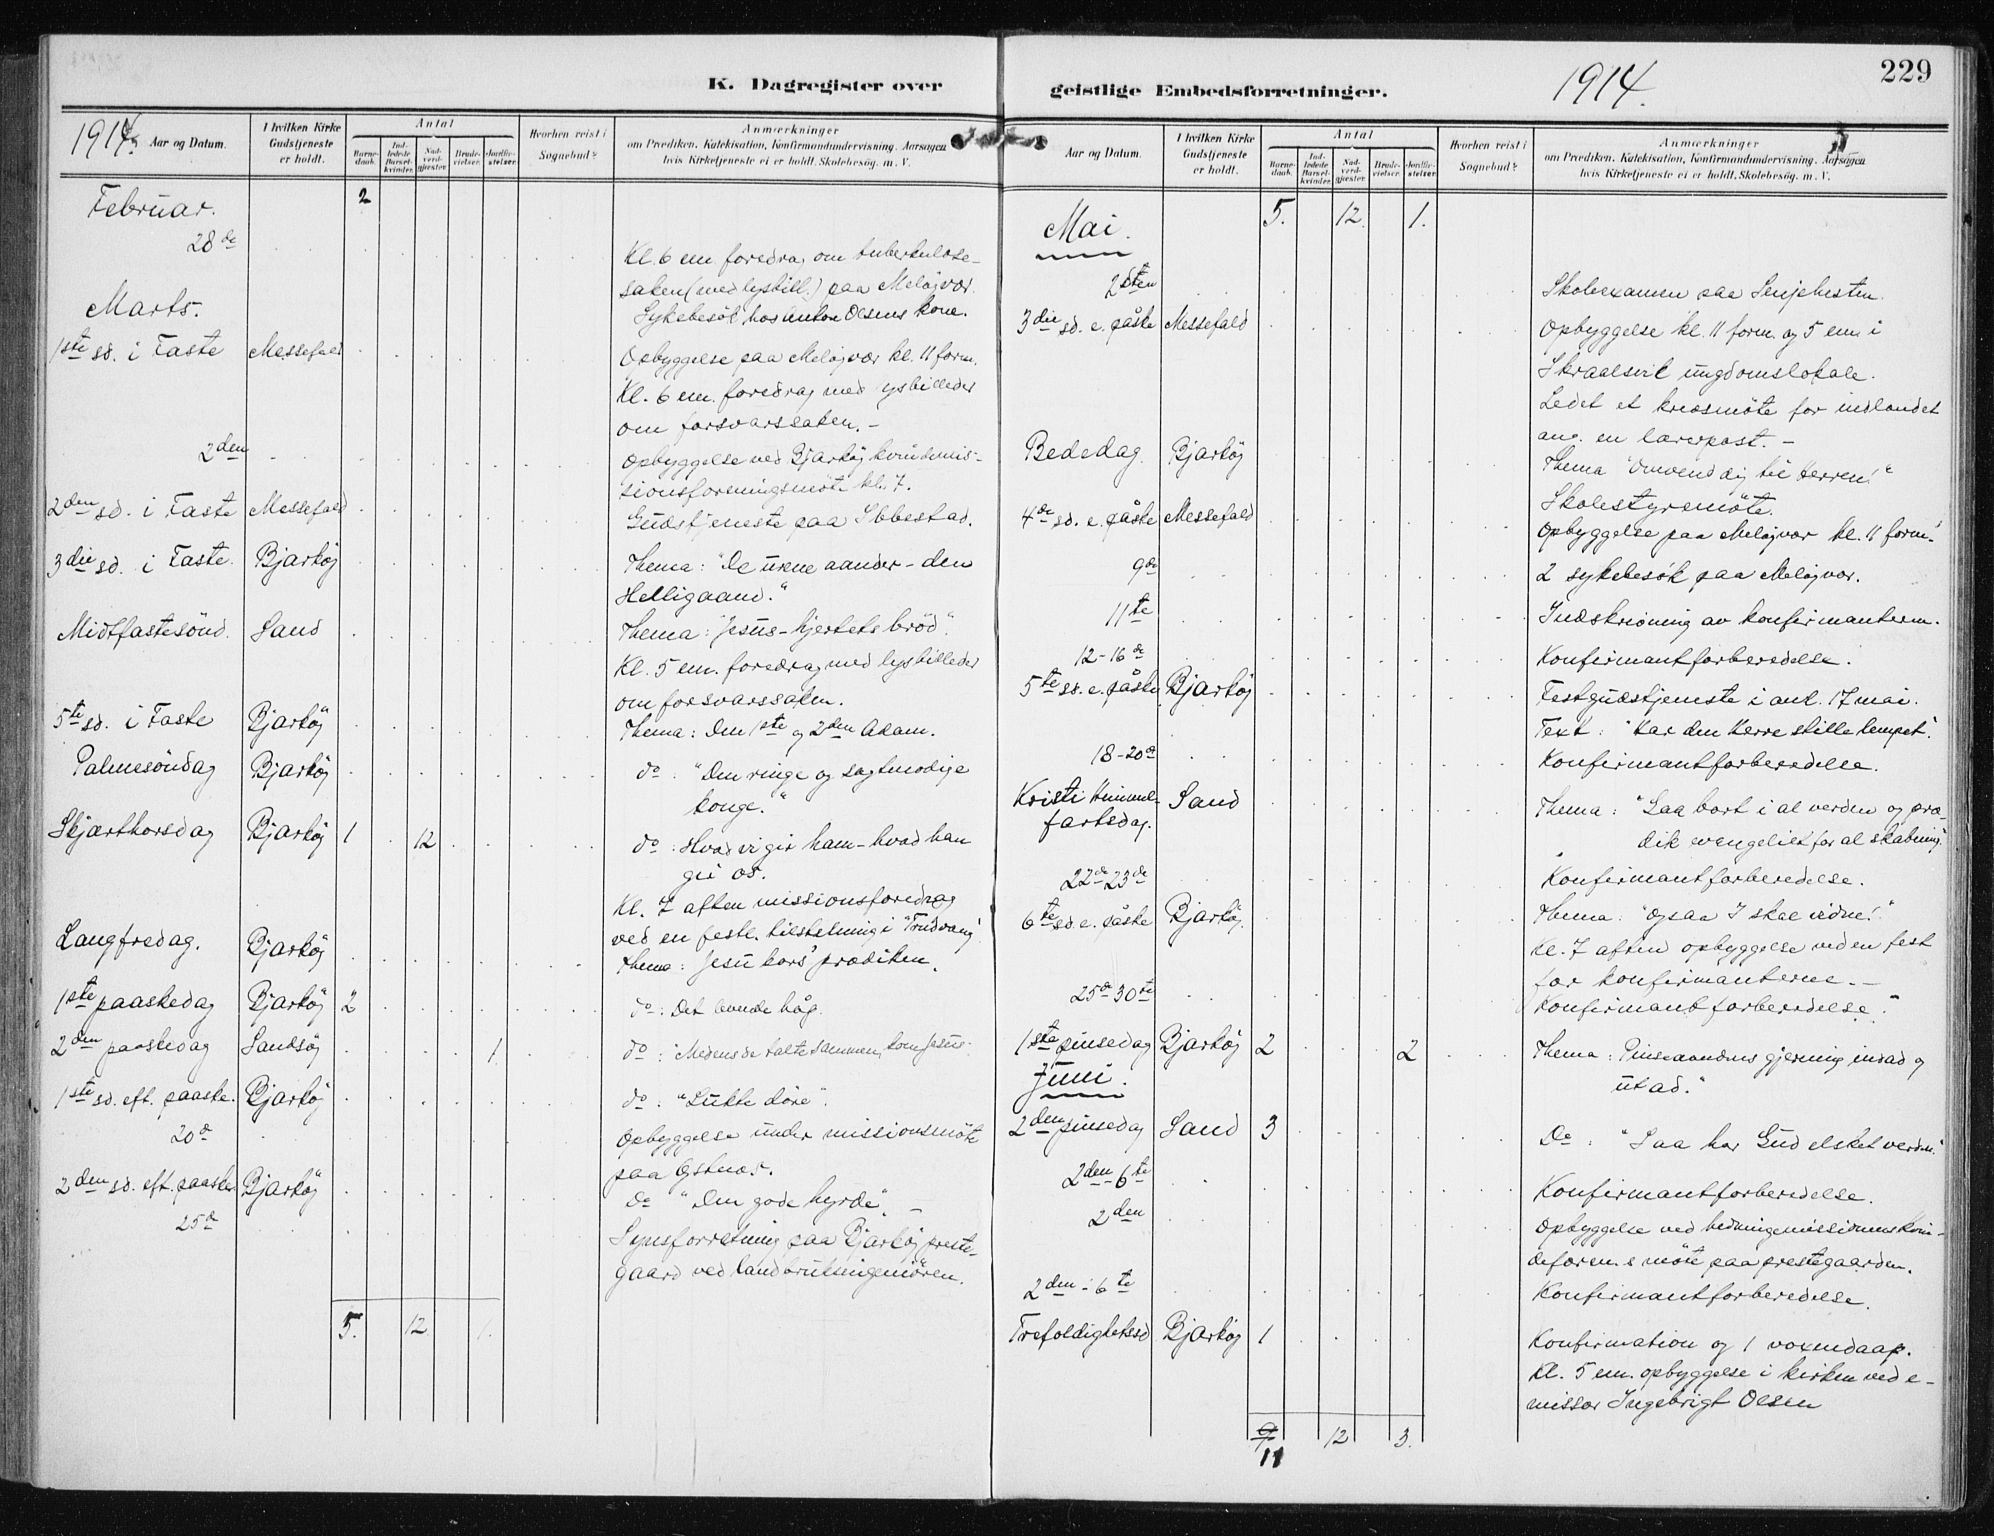 K. Dagregister over
1914
Aar og Datum.
I hvilken Kirke Gudstjeneste er holdt.
Antal
Barnedaab.
Indledede Barselkvinder.
Nadverdgjæster.
Brudevielser.
Jordfæstelser.
Hvorhen reist i Sognebud?
Anmærkninger
om Prædiken. Katekisation, Konfirmandundervisning. Aarsagen
hvis Kirketjeneste ei er holdt. Skolebesøg. m. V.
Februar. 2
28de Kl. 6 em. foredrag om tuberkulose-
saken (med lysbill.) paa Meløjvær.
Marts. Sykebesök hos Anton Olsens kone.
1ste sd. i Faste Messefald Opbyggelse paa Meløjvær kl. 11 form.
Kl. 6 em. foredrag med lysbilleder
om forsvarssaken. -
2den Opbyggelse ved Bjarköj kvindemis-
sionsforeningsmöte kl. 7.
2den sd. i Faste Messefald Gudstjeneste paa Ibbestad.
3die sd. i Faste. Bjarköj Thema: "De urene aander - den
Helligaand."
Midtfastesönd. Sand Thema: "Jesus - hjertets bröd".
Kl. 5 em. foredrag med lysbilleder
om forsvarssaken.
5te sd. i Faste Bjarköj Thema: Den 1ste og 2den Adam.
Palmesöndag Bjarköj do : "Den ringe og sagtmodige
konge."
Skjærthorsdag Bjarköj 1 12 do : Hvad vi gir ham - hvad han
gir os.
Kl. 7 aften missionsforedrag
ved en festl. tilstelning i "Trudvang".
Langfredag. Bjarköj Thema: Jesu kors' prædiken.
1ste paaskedag Bjarköj 2 do : Det levende håp.
2den paaskedag Sandsöj 1. do : "Medens de talte sammen, kom Jesus".
1ste sd. eft. paaske. Bjarköj do : "Lukte döre".
20de Opbyggelse under missionsmöte
paa Østnes.
2den sd. eft. paaske Bjarköj do "Den gode hyrde". -
25de Synsforretning paa Bjarköj preste-
gaard ved landbruksingeniören.
5. 12 1.
geistlige Embedsforretninger.
1914.
229
Aar og Datum.
I hvilken Kirke Gudstjeneste er holdt.
Antal
Barnedaab.
Indledede Barselkvinder.
Nadverdgjæster.
Brudevielser.
Jordfæstelser.
Hvorhen reist i Sognebud?
Anmærkninger
om Prædiken. Katekisation, Konfirmandundervisning. Aarsagen
hvis Kirketjeneste ei er holdt. Skolebesøg. m. V.
Mai. 5. 12. 1.
2den Skoleexamen paa Senjehesten.
3die sd. e. påske Messefald Opbyggelse kl. 11 form. og 5 em. i
Skraalsvik ungdomslokale.
Ledet et kredsmöte for indlandet
ang. en lærerpost. -
Bededag Bjarköj Thema "Omvend dig til Herren!"
Skolestyremöte.
4de sd. e. påske Messefald Opbyggelse paa Meløjvær kl. 11 form.
9de 2 sykebesök paa Meløjvær.
11te Indskrivning av konfirmanterne.
12-16de Konfirmantforberedelse.
5te sd. e. påske Bjarköj Festgudstjeneste i anl. 17 mai.
Text: "Kar den Herre stille
18-20de Konfirmantforberedelse.
Kristi Himmel-
fartsdag. Sand Thema: "Gaa bort i al verden og præ-
dik evangeliet for al skabning."
22de-23de Konfirmantforberedelse.
6te sd. e. påske Bjarköj. Thema: "Ogsaa I skal vidne!"
Kl. 7 aften opbyggelse ved en fest
for konfirmanterne. -
25de-30te Konfirmantforberedelse.
1ste pinsedag Bjarköj 2 2 Thema: Pinseaandens gjerning indad og
utad."
Juni.
2den pinsedag Sand 3 Do : "Saa har Gud elsket verden."
2den-6te Konfirmantforberedelse.
2den Opbyggelse ved hedningemissionens kvin-
deforen.s möte paa prestegaarden.
2den-6te Konfirmantforberedelse.
Trefoldighetssd Bjarköj 1 Konfirmation og 1 voxendaap.
Kl. 5 em. opbyggelse i kirken ved e-
missær Ingebrigt Olsen
9 12 3.
11